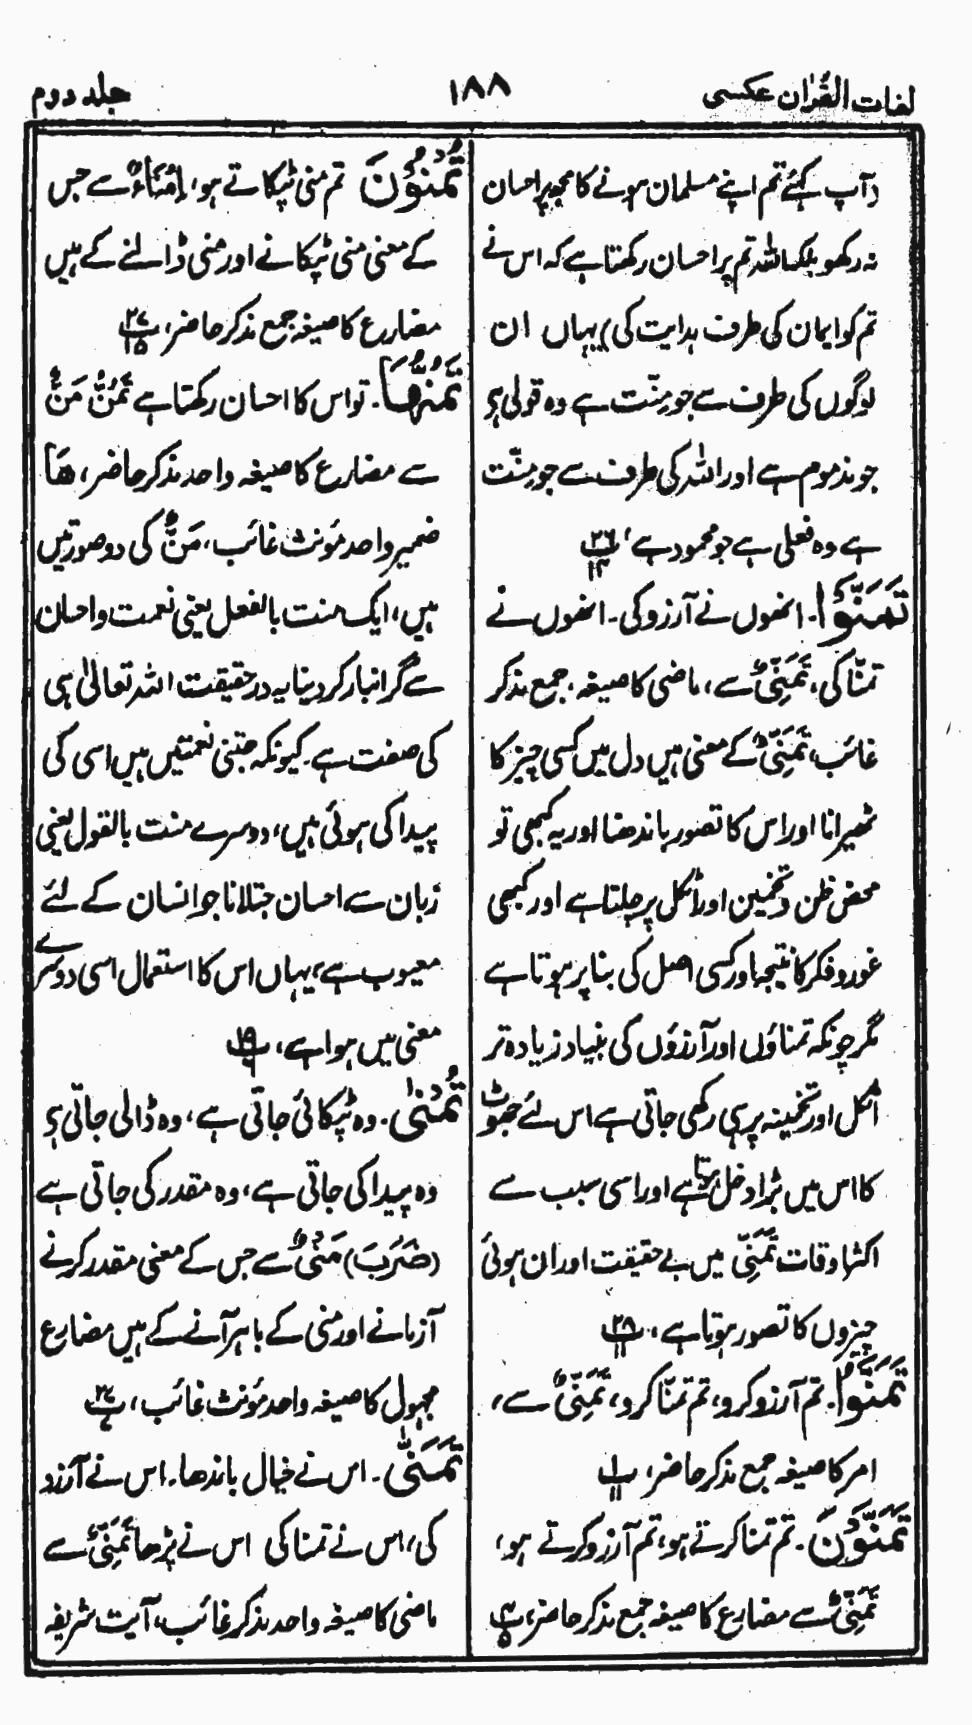 لغات القرآن عکسی
۱۸۸
جلد دوم
(آپ کہئے تم اپنے مسلمان ہونے کا مجھ پر احسان
نہ رکھو بلکہ اللہ تم پر احسان رکھتا ہے کہ اس نے
تم کو ایمان کی طرف ہدایت کی) یہاں ان
لوگوں کی طرف سے جو مِنّت ہے وہ قولی ہی
جو مذموم ہے اور اللہ کی طرف سے جو مِنّت
ہے وہ فعلی ہے جو محمود ہے، ۲۶ ۱۴
تَمَنَّوْا۔ انھوں نے آرزو کی۔ انھوں نے
تمنّا کی، تَمَنِّیٌ سے، ماضی کا صیغہ، جمع مذکر
غائب، تَمَنِّیٌ کے معنی ہیں دل میں کسی چیز کا
ٹھیرانا اور اس کا تصور باندھنا اور یہ کبھی تو
محض ظن و تخمین اور اٹکل پر چلتا ہے اور کبھی
غور و فکر کا نتیجہ اور کسی اصل کی بنا پر ہوتا ہے
مگر چونکہ تمناؤں اور آرزؤں کی بنیاد زیادہ تر
اٹکل اور تخمینہ پر ہی رکھی جاتی ہے اس لئے جھوٹ
کا اس میں بڑا دخل ہوتا ہے اور اسی سبب سے
اکثر اوقات تَمَنِّی میں بے حقیقت اور ان ہوئی
چیزوں کا تصور ہوتا ہے، ۲۸ ۱۱
تَمَنَّوُا۔ تم آرزو کرو، تم تمنّا کرو، تَمَنِّیٌ سے،
امر کا صیغہ جمع مذکر حاضر، ۱ ۱۱
تَمَنَّوْنَ۔ تم تمنا کرتے ہو، تم آرزو کرتے ہو،
تَمَنِّیٌ سے مضارع کا صیغہ جمع مذکر حاضر، ۴ ۵
تُمْنُوْنَ تم منی ٹپکاتے ہو، اِمْنَاءٌ سے جس
کے معنی منی ٹپکانے اور منی ڈالنے کے ہیں
مضارع کا صیغہ جمع مذکر حاضر، ۲۷ ۱۵
تَمُنُّهَا۔ تو اس کا احسان رکھتا ہے تَمُنُّ مَنٌّ
سے مضارع کا صیغہ واحد مذکر حاضر، هَا
ضمیر واحد مؤنث غائب، مَنٌّ کی دو صورتیں
ہیں، ایک منت بالفعل یعنی نعمت و احسان
سے گرانبار کر دینا یہ در حقیقت اللہ تعالیٰ ہی
کی صفت ہے۔ کیونکہ جتنی نعمتیں ہیں اسی کی
پیدا کی ہوئی ہیں، دوسرے منت بالقول یعنی
زبان سے احسان جتلانا جو انسان کے لئے
معیوب ہے، یہاں اس کا استعمال اسی دوسرے
معنی میں ہوا ہے، ۱۹
تُمْنٰی۔ وہ ٹپکائی جاتی ہے، وہ ڈالی جاتی ہی
وہ پیدا کی جاتی ہے، وہ مقدر کی جاتی ہے
(ضَرَبَ) مَنْیٌ سے جس کے معنی مقدر کرنے
آزمانے اور منی کے باہر آنے کے ہیں مضارع
مجہول کا صیغہ واحد مؤنث غائب، ۲۷
تَمَنّٰی۔ اس نے خیال باندھا۔ اس نے آرزو
کی، اس نے تمنا کی اس نے پڑھا تَمَنِّیٌ سے
ماضی کا صیغہ واحد مذکر غائب، آیت شریفہ